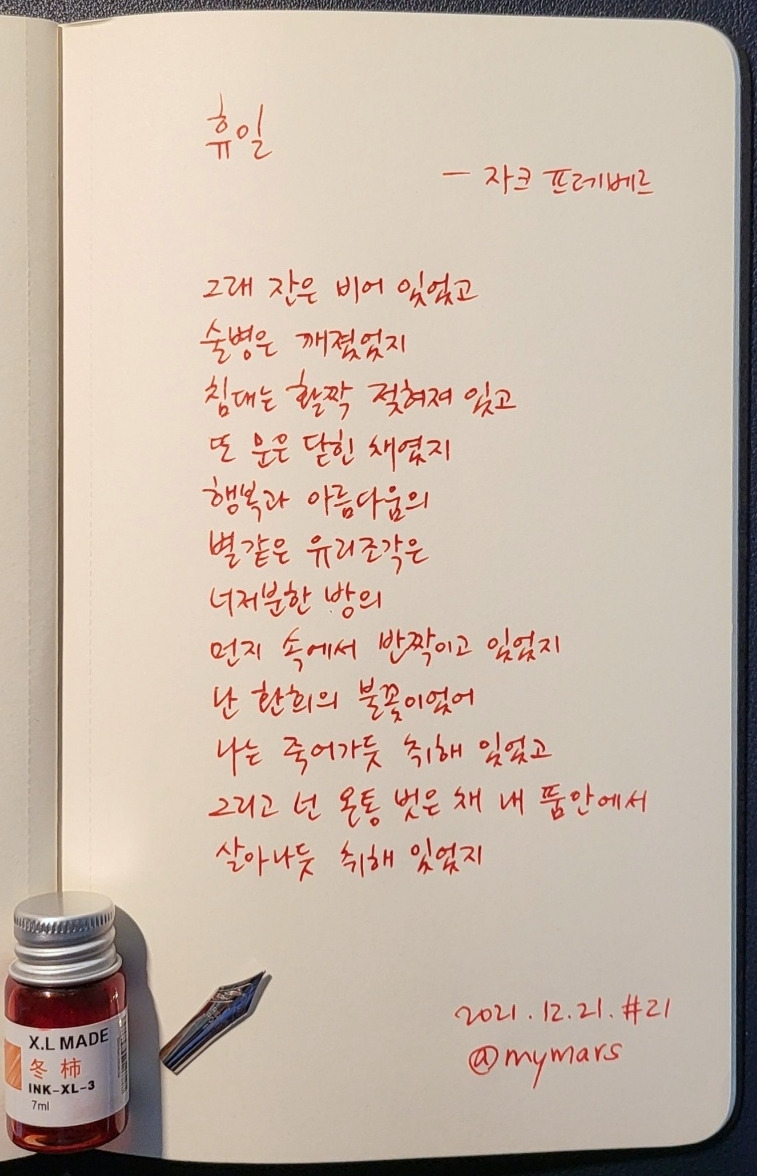 휴일
— 자크 프레베르
그래 잔은 비어 있었고
술병은 깨졌었지
침대는 활짝 젖혀져 있고
또 문은 닫힌 채였지
행복과 아름다움의
별같은 유리조각은
너저분한 방의
먼지 속에서 반짝이고 있었지
난 환희의 불꽃이었어
나는 죽어가듯 취해 있었고
그리고 넌 온통 벗은 채 내 품안에서
살아나듯 취해 있었지
2021.12.21.#21
@mymars
X.L MADE
冬柿
INK-XL-3
7ml